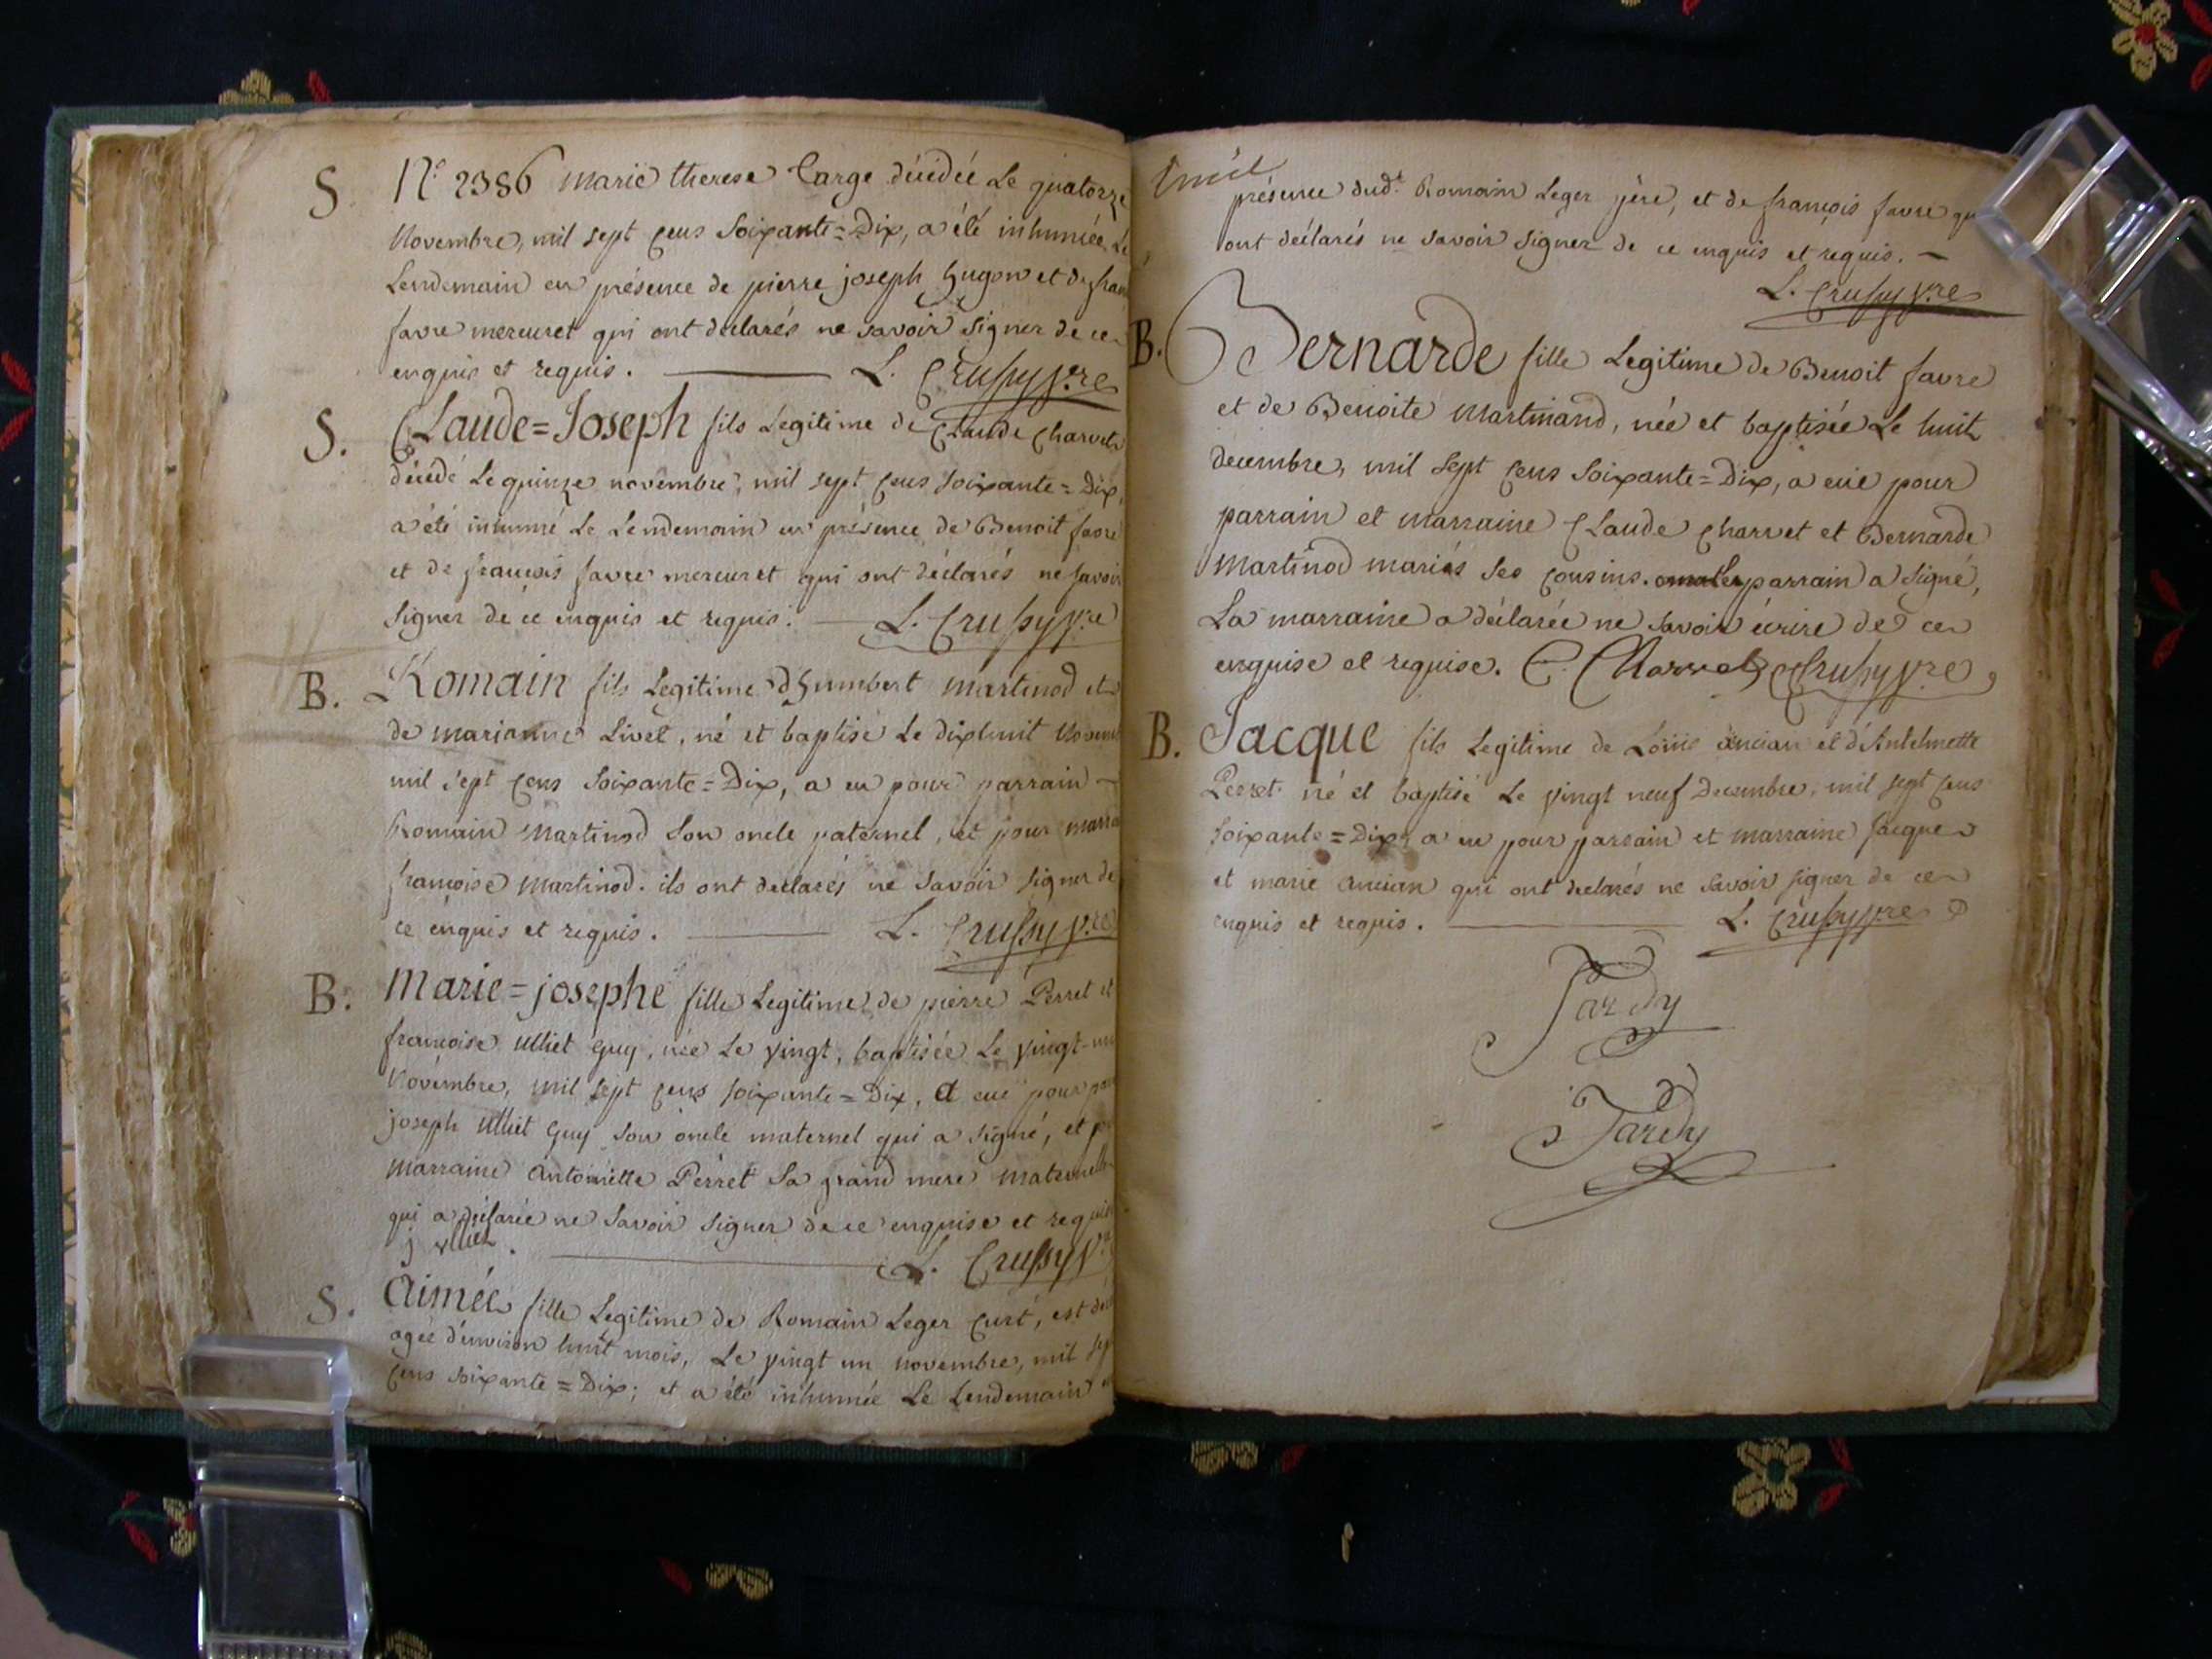 S. N.° 2386 marie therese Large décédée Le quatorze
Novembre, mil sept cens Soixante=Dix, a été inhumée Le
Lendemain en présence de pierre joseph hugon et de fran
favre mercuret qui ont déclarés ne savoir signer de ce
enquis et requis. L. Crussy p.re
S. CLaude=Joseph fils Legitime de CLaude Charvet
décédé Le quinze novembre, mil sept cens soixante=Dix,
a été inhumé Le Lendemain en présence de Benoit favre
et de françois favre mercuret qui ont déclarés ne savoir
signer de ce enquis et requis. L. Crussy p.re
B. Romain fils Legitime d'humbert martinod et
de marianne Livet, né et baptisé Le dixhuit Novem
mil sept cens Soixante=Dix, a eu pour parrain
Romain Martinod Son oncle paternel, et pour marra
françoise martinod. ils ont déclarés ne savoir signer de
ce enquis et requis. L. Crussy p.re
B. Marie=josephe fille Legitime de pierre Perret et
françoise Ulliet Guy, née Le vingt, baptisée Le vingt-un
Novembre, mil sept cens soixante=Dix, a eüe pour par
joseph Ulliet Guy son oncle maternel qui a signé, et p
marraine Antoinette Perret Sa grand mere maternelle
qui a déclarée ne Savoir signer de ce enquise et requis
j ulliet L. Crussy p.r
S. Aimée fille Legitime de Romain Leger Curt, est déc
agée d'environ huit mois, Le vingt un novembre, mil sep
cens soixante=Dix; et a été inhumée Le Lendemain en
présence dud.t Romain Leger père, et de françois favre qu
ont déclarés ne savoir signer de ce enquis et requis.
L. Crussy p.re
B. Bernarde fille Legitime de Benoit favre
et de Benoite Martinand, née et baptisée Le huit
decembre, mil sept cens soixante=Dix, a eüe pour
parrain et marraine CLaude Charvet et Bernarde
Martinod mariés ses cousins. Le parrain a signé,
La marraine a déclarée ne savoir écrire de ce
enquise et requise. C. Charvet L Crussy p.re
B. Jacque fils Legitime de Loüis ancian et d'Antelmette
Perret né et baptisé Le vingt neuf Decembre, mil sept cens
soixante=Dix, a eu pour parrain et marraine Jacque
et marie Ancian qui ont déclarés ne savoir signer de ce
enquis et requis. L. Crussy p.re
Tardy
Tardy